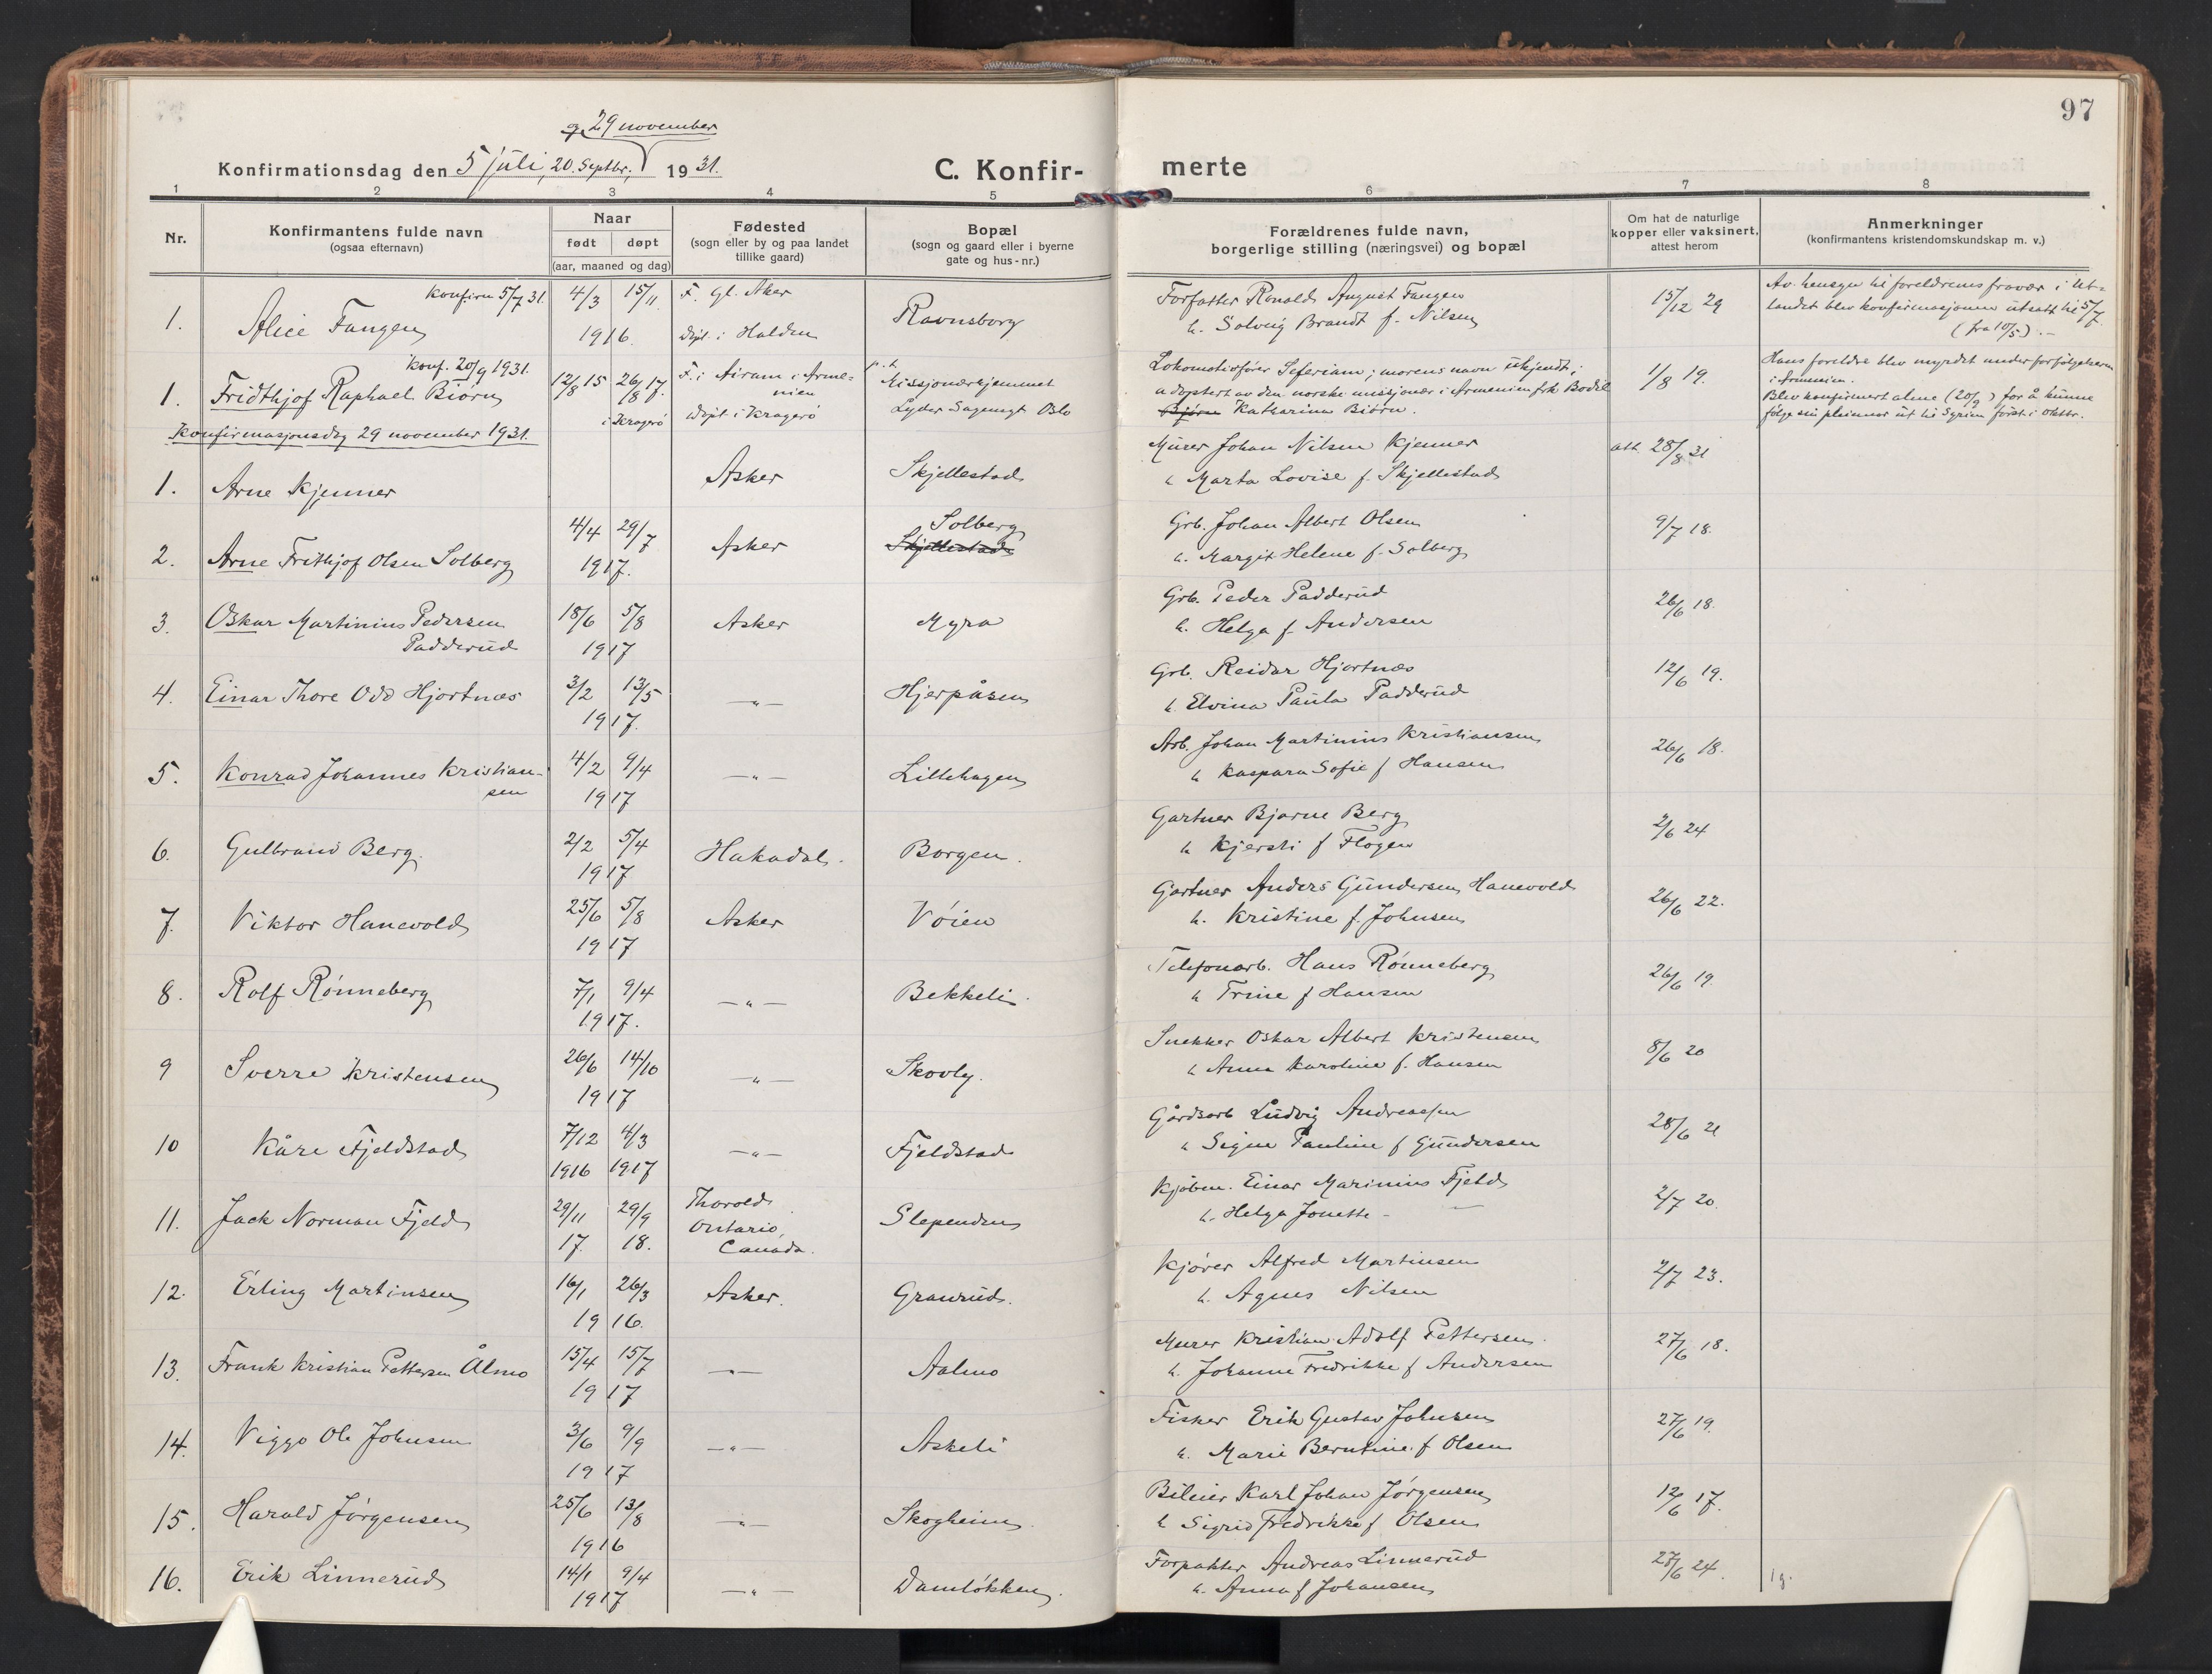 97
og 29 november
Konfirmationsdag den 5 juli, 20. Septbr, 1931.
C. Konfir- merte
1 2 3 4 5 6 7 8
Nr.
Konfirmantens fulde navn
(ogsaa efternavn)
Naar
født døpt
(aar, maaned og dag)
Fødested
(sogn eller by og paa landet
tillike gaard)
Bopæl
(sogn og gaard eller i byerne
gate og hus-nr.)
Forældrenes fulde navn,
borgerlige stilling (næringsvei) og bopæl
Om hat de naturlige
kopper eller vaksinert,
attest herom
Anmerkninger
(konfirmantens kristendomskundskap m. v.)
konfirm 5/7 31.
1. Alice Fangen 4/3 15/11 1916. F. Gl. Aker
døpt i Halden Ravnsborg
Forfatter Ronald August Fangen
h. Solveig Brandt f. Nilsen 15/12 29
Av hensyn til foreldrenes fravær i Ut-
landet blev konfirmasjonen utsatt til 5/7
(fra 10/5).–
konf. 20/9 1931.
1. Fridthjof Raphael Biørn 12/8 15 26/8 17. i Kragerø
F. i Airam i Arme-
nien
døpt i Kragerø
p. t.
Missjonærhjemmet
Lyder Sagensgt Oslo
Lokomotivfører Seferiam; morens navn ukjendt;
adoptert av den norske misjonær i Armenien frk Bodil
Bjørn Katharina Biørn. 1/8 19.
Hans foreldre blev myrdet under forfølgelsene
i Armenien.
Blev konfirmert alene (20/9) for å kunne
følge sin pleiemor ut til Syrien først i oktbr.
Konfirmasjonsdag 29 november 1931.
1. Arne Kjenner Asker Skjellestad
Murer Johan Nilsen Kjenner
h Marta Lovise f. Skjellestad att. 28/8 31
2. Arne Frithjof Olsen Solberg 4/4 29/7 1917. Asker Solberg
Skjellestad
Grb. Johan Albert Olsen
h. Margit Helene f. Solberg 9/7 18.
3. Oskar Martinius Pedersen
Padderud 18/6 5/8 1917 Asker Myra
Grb. Peder Padderud
h. Helga f. Andersen 26/6 18.
4. Einar Thore Odd Hjortnæs 3/2 13/5 1917. —„— Hjerpåsen
Grb. Reidar Hjortnæs
h. Elvina Paula Padderud 12/6 19.
5. Konrad Johannes Kristian-
sen 4/2 9/4 1917 —„— Lillehagen
Arb. Johan Martinius Kristiansen
h Kaspara Sofie f Hansen 26/6 18.
6. Gulbrand Berg. 2/2 5/4 1917 Hakadal. Borgen.
Gartner Bjarne Berg
h Kjersti f Flogen 2/6 24
7. Viktor Hanevold 25/6 5/8 1917 Asker Vøien
Gartner Anders Gundersen Hanevold
h. Kristine f. Johnsen 26/6 22.
8. Rolf Rønneberg 7/1 9/4 1917. —„— Bekkeli.
Telefonarb. Hans Rønneberg
h Trine f Hansen 26/6 19.
9 Sverre Kristensen 26/6 14/10 1917 —„— Skovly.
Snekker Oskar Albert Kristensen
h Anna Karoline f. Hansen 8/6 20
10 Kåre Fjeldstad 7/12 4/3 1916 1917 —„— Fjeldstad
Gårdsarb Ludvig Andreassen
h Signe Pauline f Gundersen 28/6 21
11. Jack Norman Fjeld 29/11 29/9 17. 18. Thorold
Ontario,
Canada. Slependen
Kjøbm. Einar Marinius Fjeld
h. Helga Jonette – — 2/7 20.
12. Erling Martinsen 16/1 26/3 1916. Asker. Granrud.
Kjører Alfred Martinsen
h. Agnes Nilsen 2/7 23.
13. Frank Kristian Pettersen Ålmo 15/4 15/7 1917 —„— Aalmo
Murer Kristian Adolf Pettersen.
h. Johanne Fredrikke f Andersen 27/6 18.
14. Viggo Ole Johnsen 3/6 9/9 1917 —„— Askeli
Fisker Erik Gustav Johnsen
h. Marie Berntine f Olsen 27/6 19.
15. Harald Jørgensen 25/6 13/8 1916 —„— Skogheim.
Bileier Karl Johan Jørgensen
h Sigrid Fredrikke f Olsen 12/6 17.
16. Erik Linnerud 14/1 9/4 1917 —„— Damløkken.
Forpakter Andreas Linnerud
h. Anna f Johansen 27/6 24. 1g.